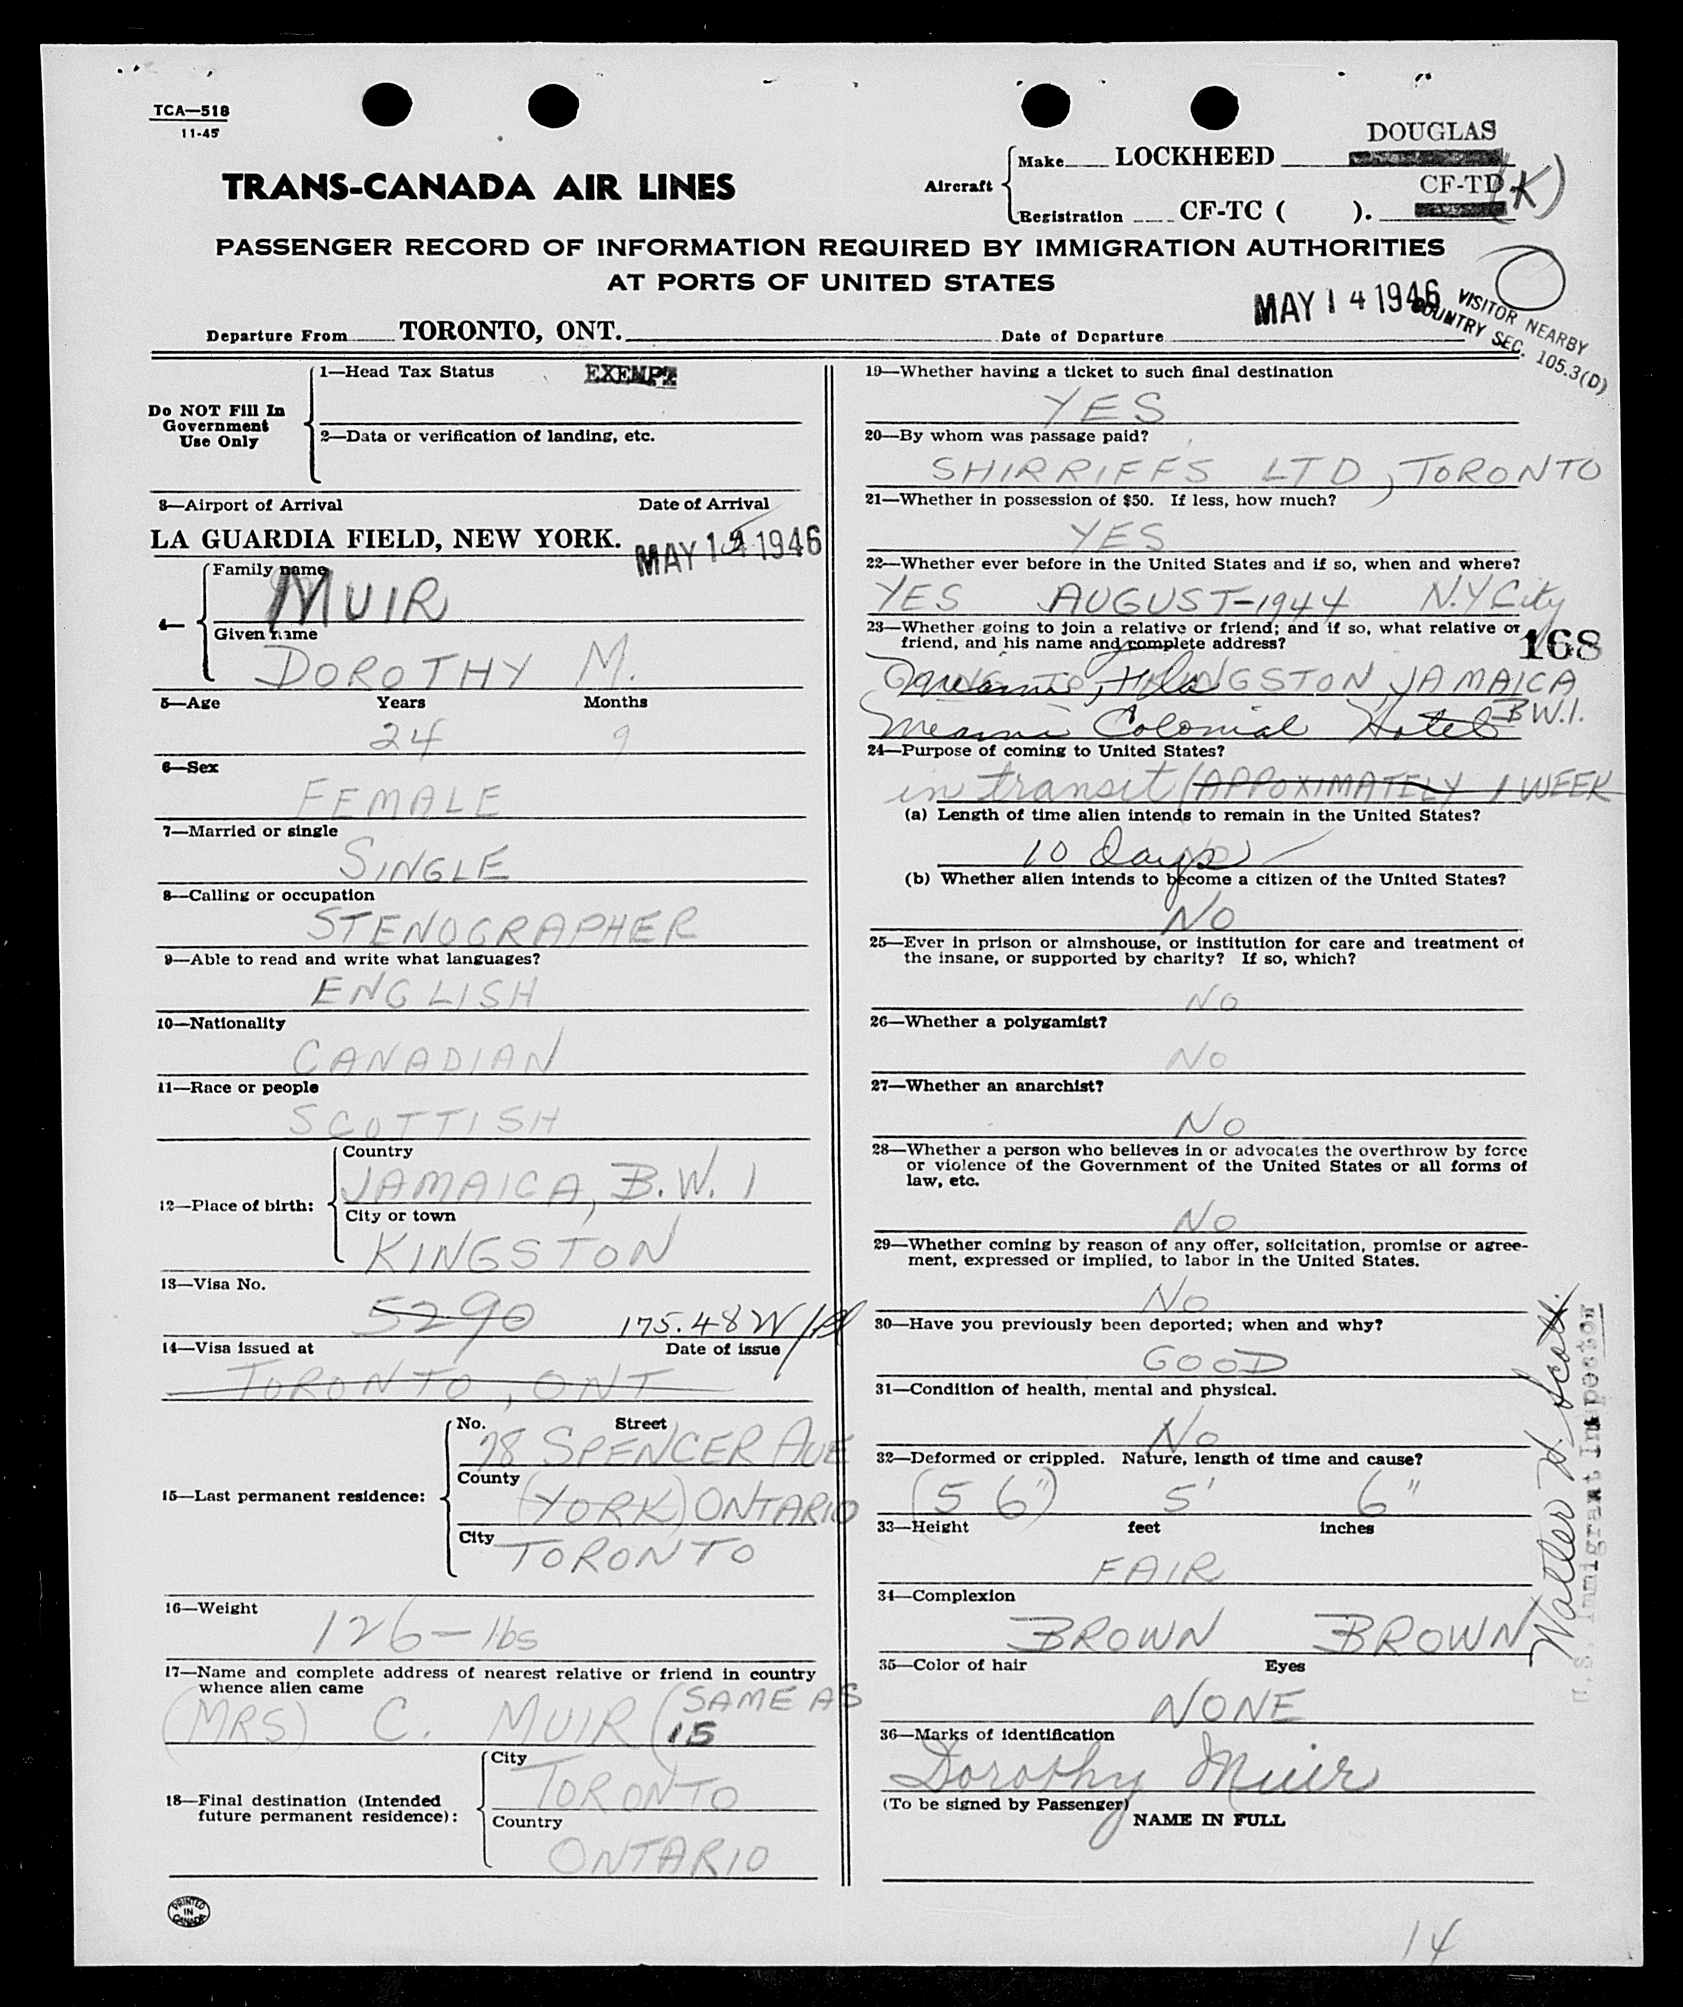 TCA—518
11-45
TRANS-CANADA AIR LINES
Aircraft
Make LOCKHEED DOUGLAS
Registration CF-TC ( ). CF-TD (K)
PASSENGER RECORD OF INFORMATION REQUIRED BY IMMIGRATION AUTHORITIES
AT PORTS OF UNITED STATES
Departure From TORONTO, ONT. Date of Departure MAY 14 1946
VISITOR NEARBY
COUNTRY SEC. 105.3(D)
Do NOT Fill In
Government
Use Only
1—Head Tax Status EXEMPT
2—Data or verification of landing, etc.
3—Airport of Arrival Date of Arrival
LA GUARDIA FIELD, NEW YORK. MAY 1 1946
4—
Family name
MUIR
Given name
DOROTHY M.
5—Age Years Months
24 9
6—Sex
FEMALE
7—Married or single
SINGLE
8—Calling or occupation
STENOGRAPHER
9—Able to read and write what languages?
ENGLISH
10—Nationality
CANADIAN
11—Race or people
SCOTTISH
12—Place of birth:
Country
JAMAICA, B.W.I
City or town
KINGSTON
13—Visa No.
5290 175.48
14—Visa issued at Date of issue
TORONTO, ONT
15—Last permanent residence:
No. Street
78 SPENCER AVE
County
(YORK) ONTARIO
City
TORONTO
16—Weight
126-lbs
17—Name and complete address of nearest relative or friend in country
whence alien came
(MRS) C. MUIR (SAME AS
15
18—Final destination (Intended
future permanent residence):
City
TORONTO
Country
ONTARIO
PRINTED
IN
CANADA
19—Whether having a ticket to such final destination
YES
20—By whom was passage paid?
SHIRRIFFS LTD, TORONTO
21—Whether in possession of $50. If less, how much?
YES
22—Whether ever before in the United States and if so, when and where?
YES AUGUST-1944 N.Y City
23—Whether going to join a relative or friend; and if so, what relative or
friend, and his name and complete address?
168
GOING TO KINGSTON, JAMAICA
B.W.I.
Colonial Hotel
24—Purpose of coming to United States?
in transit (APPOXIMATELY 1 WEEK
(a) Length of time alien intends to remain in the United States?
10 Days
(b) Whether alien intends to become a citizen of the United States?
NO
25—Ever in prison or almshouse, or institution for care and treatment of
the insane, or supported by charity? If so, which?
NO
26—Whether a polygamist?
NO
27—Whether an anarchist?
NO
28—Whether a person who believes in or advocates the overthrow by force
or violence of the Government of the United States or all forms of
law, etc.
NO
29—Whether coming by reason of any offer, solicitation, promise or agree-
ment, expressed or implied, to labor in the United States.
NO
30—Have you previously been deported; when and why?
GOOD
31—Condition of health, mental and physical.
NO
32—Deformed or crippled. Nature, length of time and cause?
(5 6") 5' 6"
33—Height feet inches
FAIR
34—Complexion
BROWN BROWN
35—Color of hair Eyes
NONE
36—Marks of identification
Dorothy Muir
(To be signed by Passenger)
NAME IN FULL
Walter H. Scott.
U. S. Immigrant Inspector
14